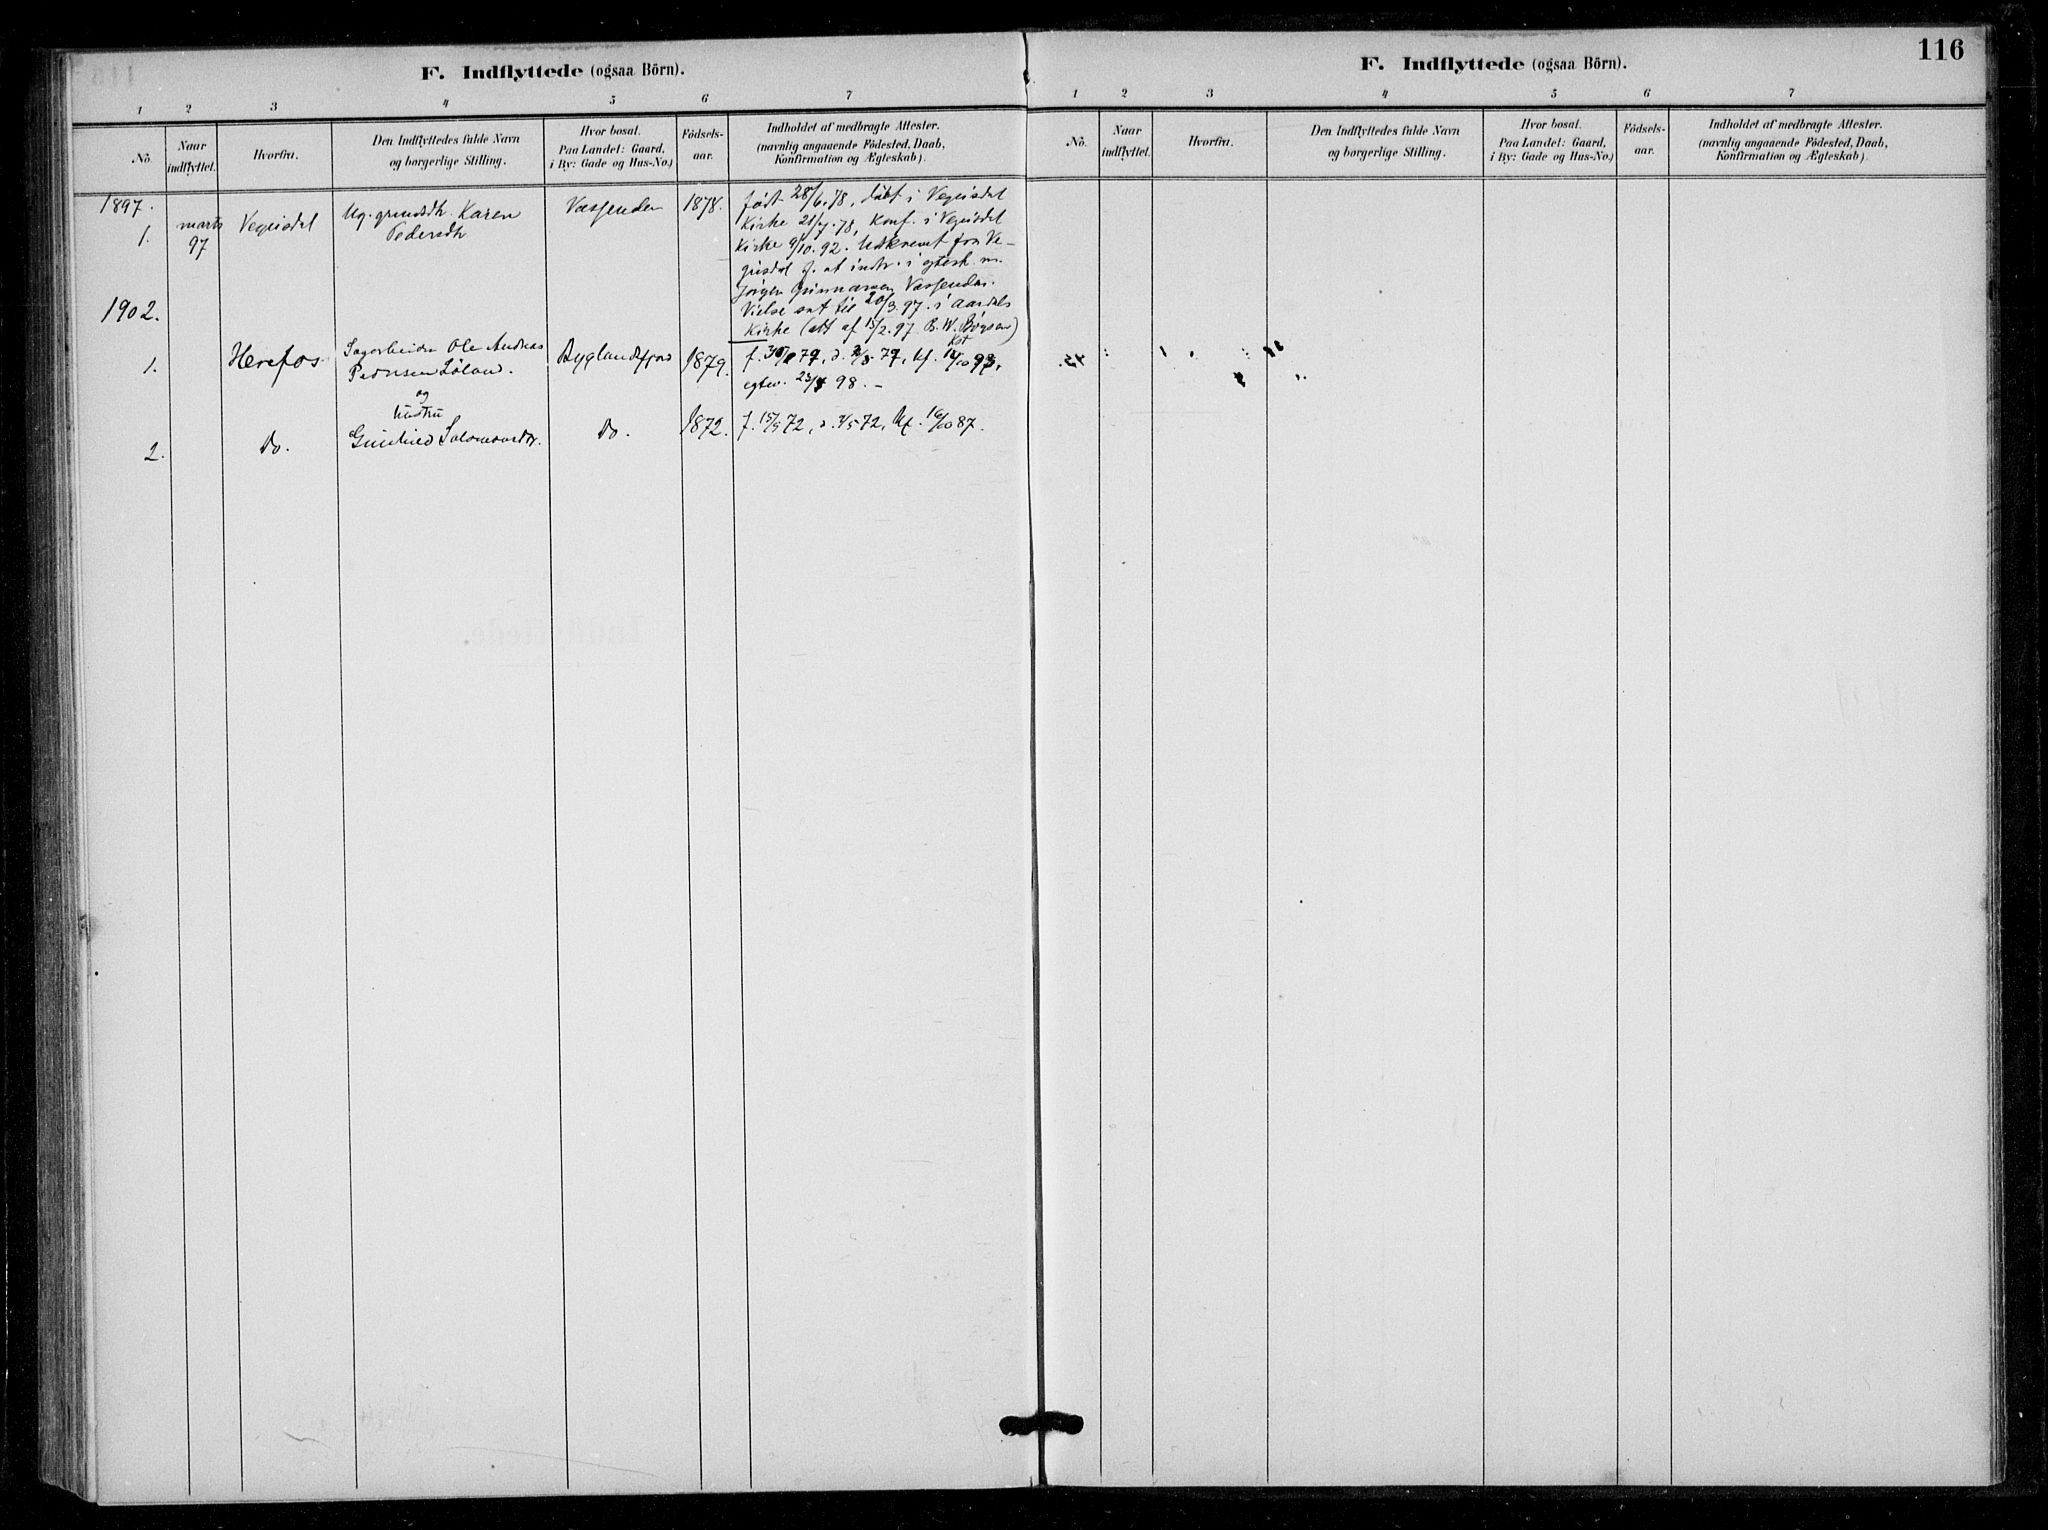 F. Indflyttede (ogsaa Börn).
1 2 3 4 5 6 7
No. Naar indflyttet. Hvorfra. Den Indflyttedes fulde Navn og borgerlige Stilling. Hvor bosat. Paa Landet: Gaard, i By: Gade og Hus-No.) Födsels-aar. Indholdet af medbragte Attester. (navnlig angaaende Födested, Daab, Konfirmation og Ægteskab).
1897.
1. marts 97 Vegusdal Ug. Karen Pedersdtr. Vassenden 1878.
født 28/6. 78, døbt i Vegusdal
Kirke 21/7. 78, Konf. i Vegusdal
Kirke 9/10. 92. Udskrevet fra Ve-
gusdal f. at indtr. i egtesk. m.
Jørgen Gunnarsen Vassenden.
Vielse sat til 20/3. 97. i Aardals
Kirke (att af 15/2. 97
1902.
1. Herefos Ole Andreas Pedersen Løland. Byglandsfjord 1879.
og
hustru
2. Do. Gunhild Salomonsdtr. Do. 1872. f. 15/4 72, d. 72, kf. 16/10 87.
116
F. Indflyttede (ogsaa Börn).
1 2 3 4 5 6 7
No. Naar indflyttet. Hvorfra. Den Indflyttedes fulde Navn og borgerlige Stilling. Hvor bosat. Paa Landet: Gaard, i By: Gade og Hus-No.) Födsels-aar. Indholdet af medbragte Attester. (navnlig angaaende Födested, Daab, Konfirmation og Ægteskab)